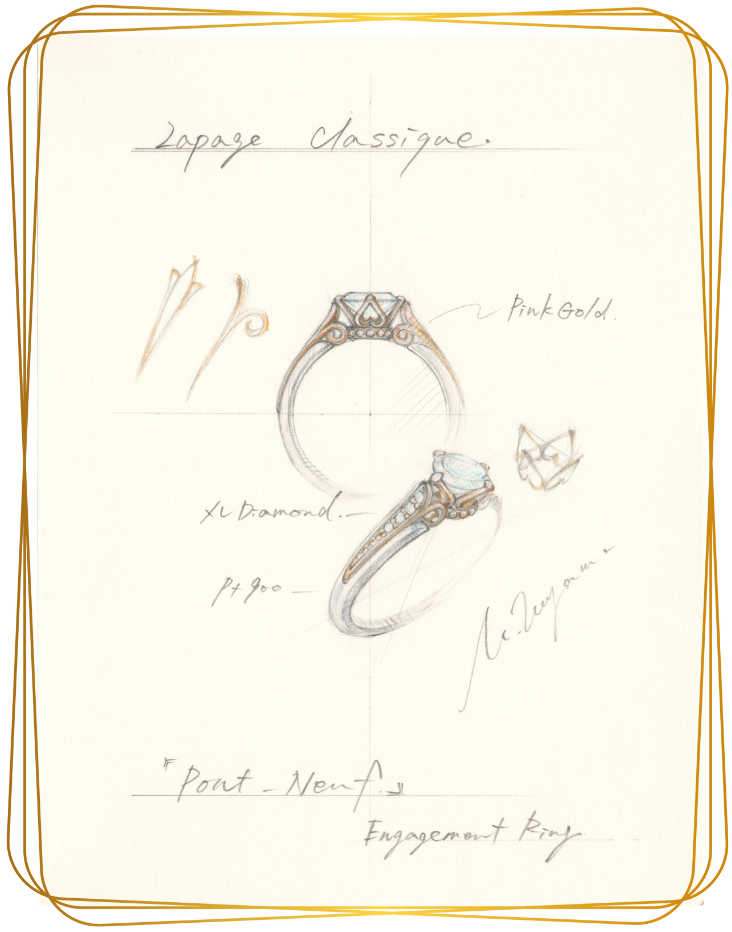 Lapage Classique.
Pink Gold.
Diamond.
Pt 900
『Pont-Neuf.』
Engagement Ring